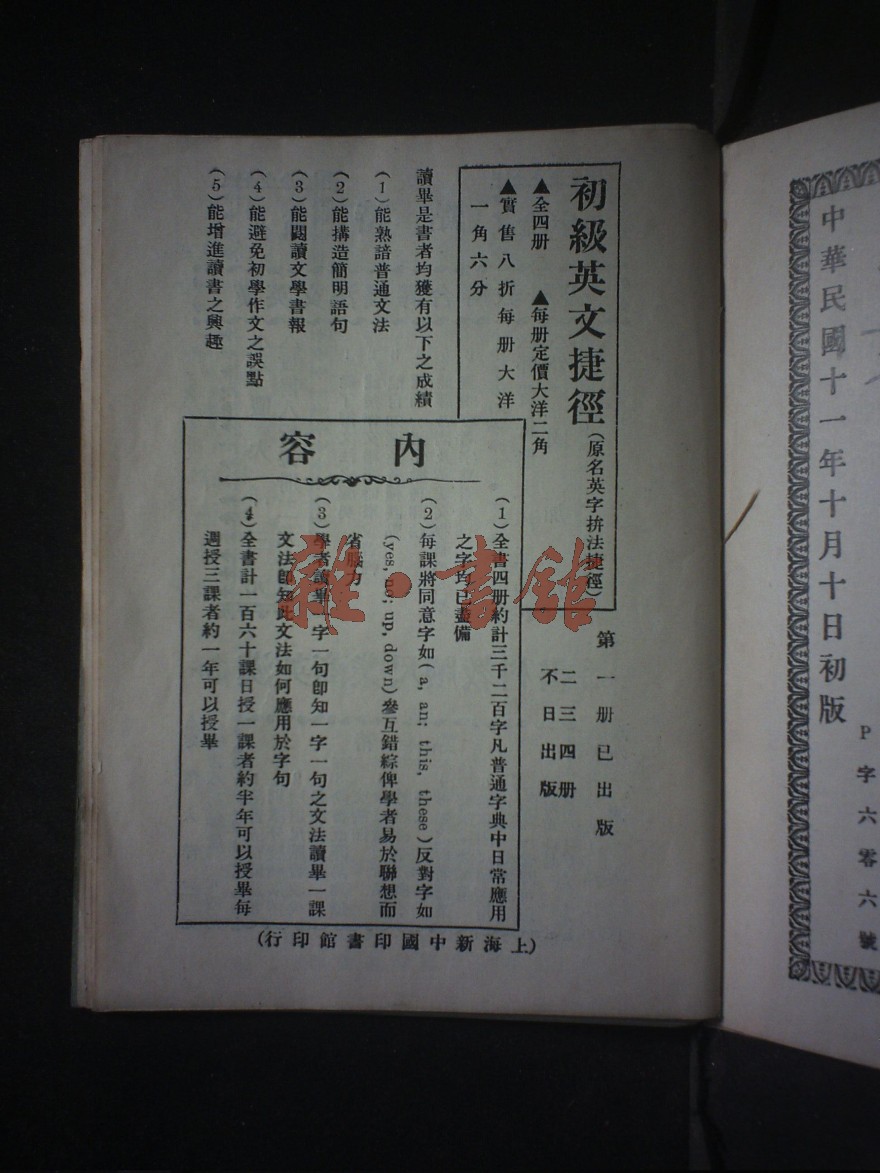 中華民國十一年十月十日初版
P字六零六號
初級英文捷徑(原名英字拚法捷徑)
▲全四册 ▲每册定價大洋二角
▲實售八折每册大洋
一角六分
第一册已出版
二三四册
不日出版
讀畢是書者均獲有以下之成績
(1)能熟諳普通文法
(2)能搆造簡明語句
(3)能閱讀文學書報
(4)能避免初學作文之誤點
(5)能增進讀書之興趣
內容
(1)全書四册約計三千二百字凡普通字典中日常應用
之字均已盡備
(2)每課將同意字如(a, an; this, these)反對字如
(yes, no; up, down)參互錯綜俾學者易於聯想而
省腦力
(3)學者讀畢一字一句卽知一字一句之文法讀畢一課
文法卽知此文法如何應用於字句
(4)全書計一百六十課日授一課者約半年可以授畢每
週授三課者約一年可以授畢
(上海新中國印書館印行)
雜·書館